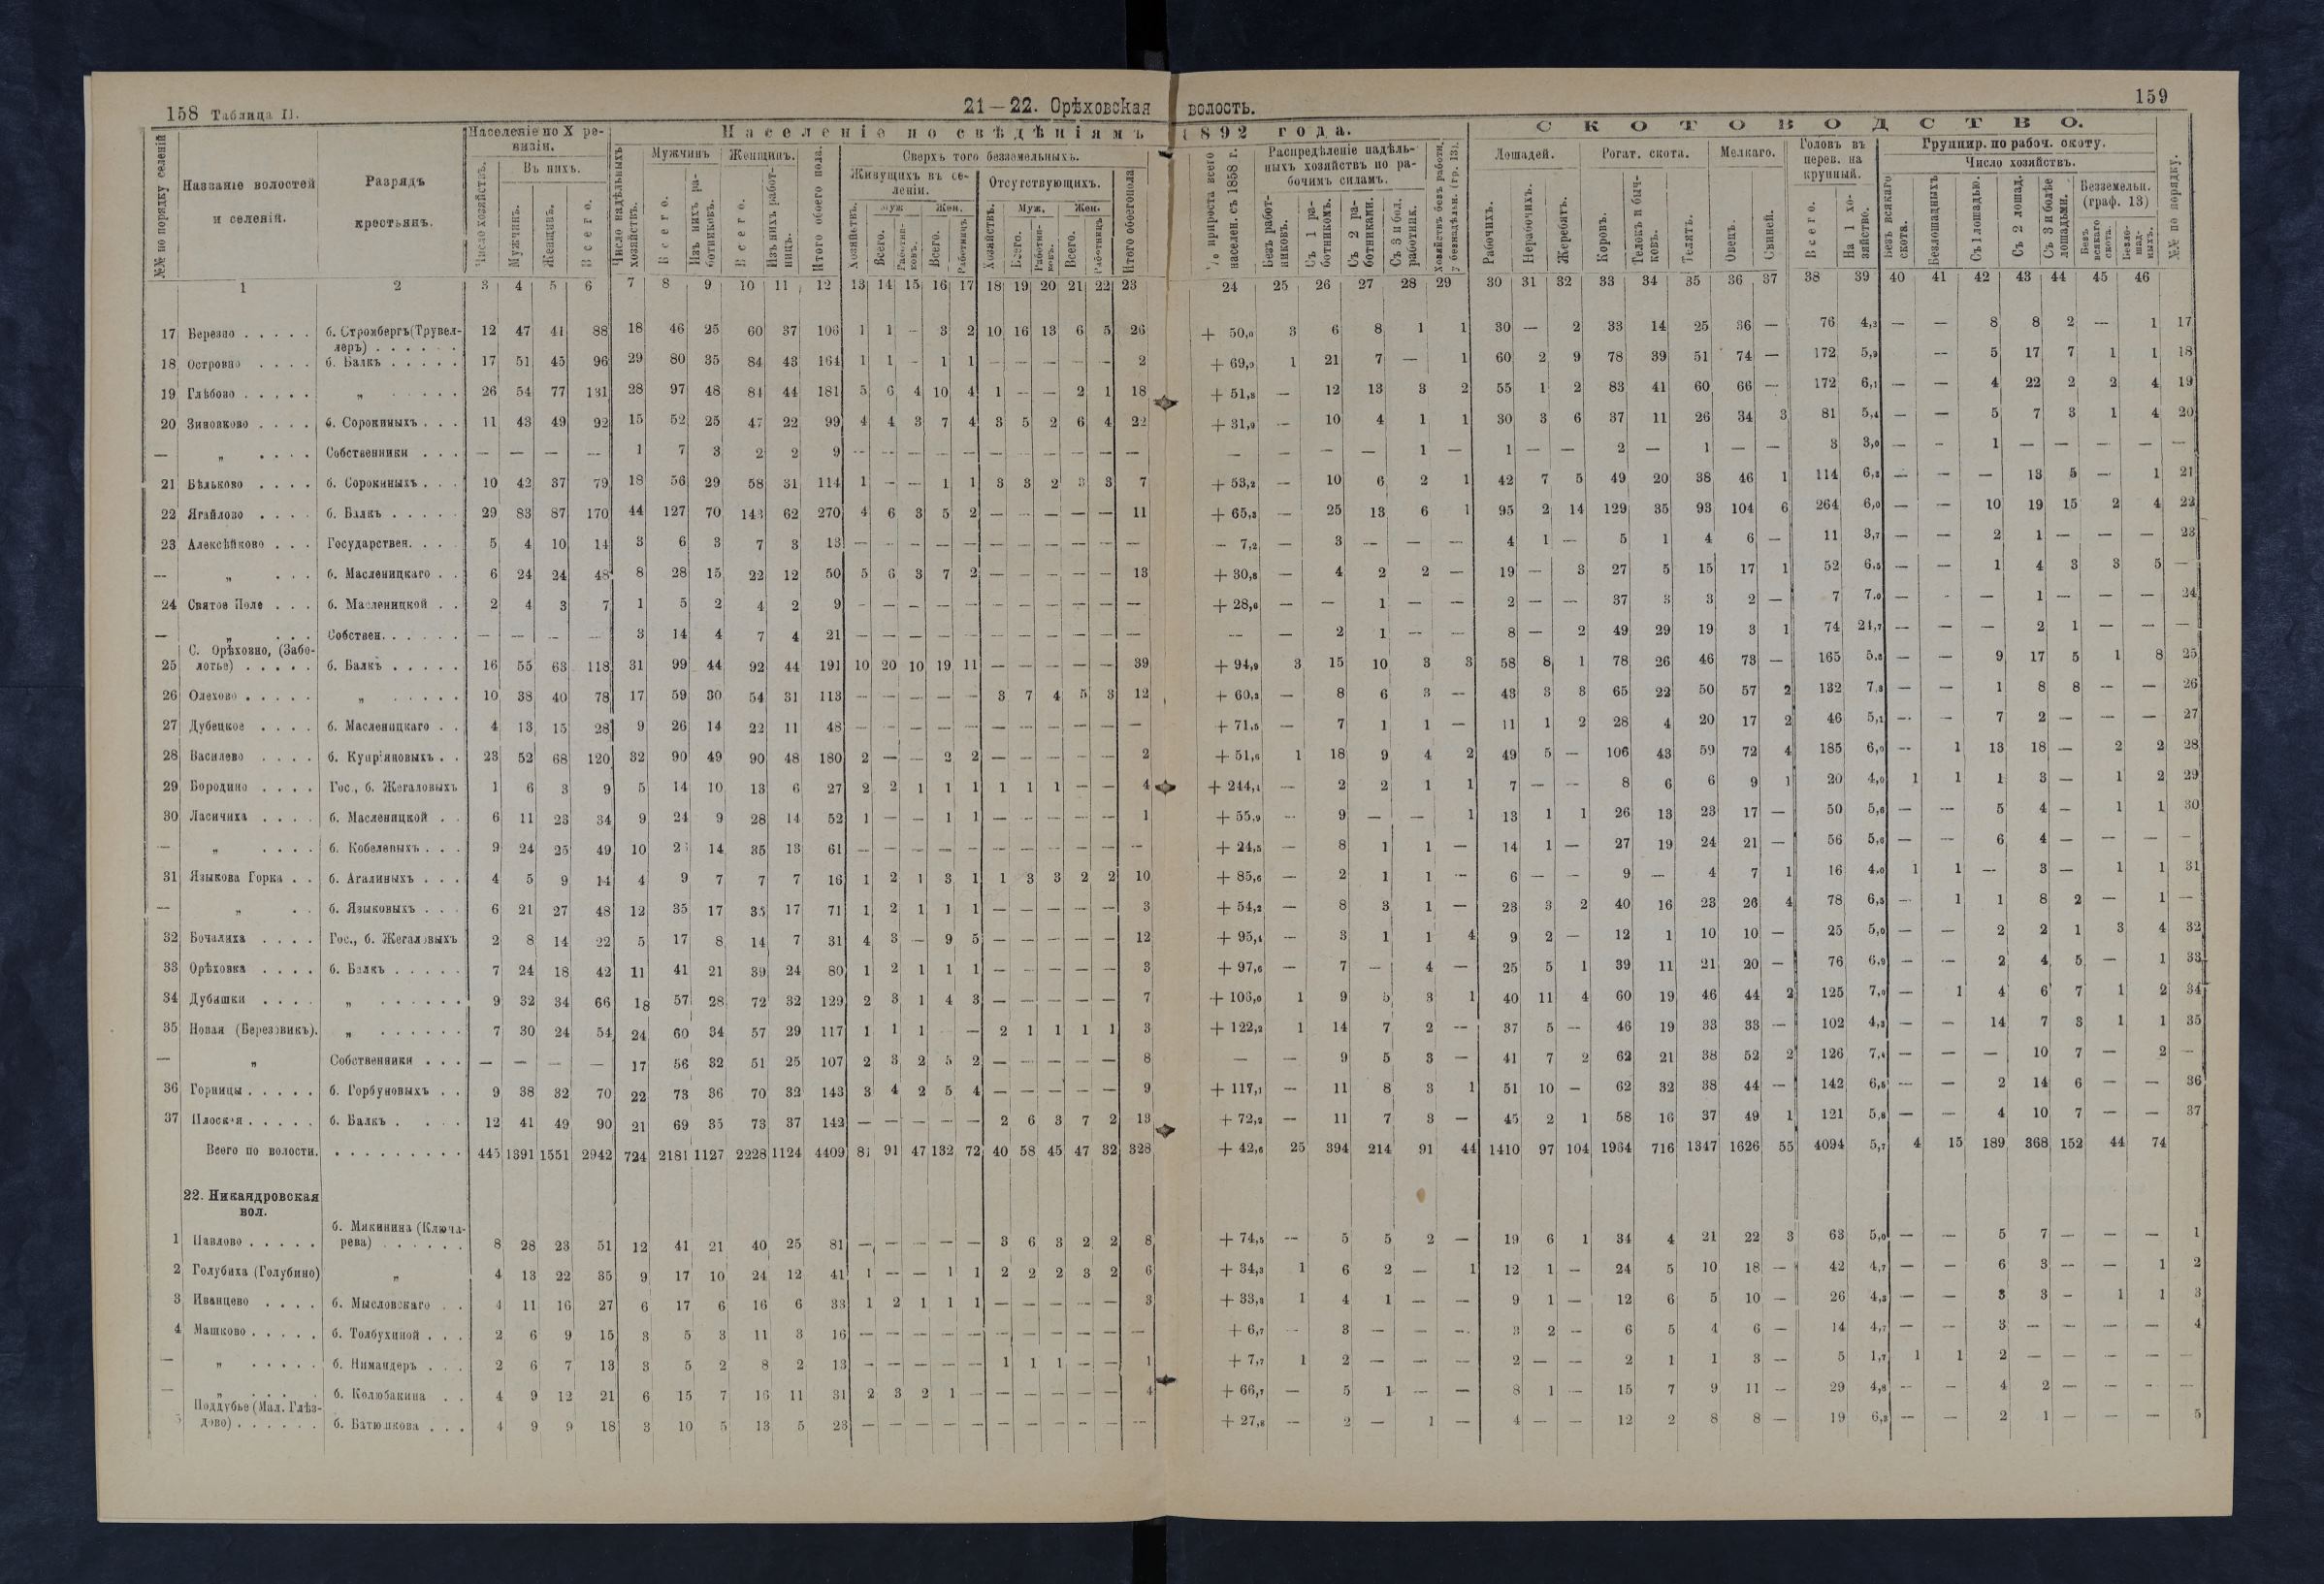 158 Таблица II.
21—22. Орѣховская волость.
159
№№ по порядку селеній
Названіе волостей и селеній.
Разрядъ крестьянъ.
Населеніе по X ревизіи.
Число хозяйствъ.
Въ нихъ.
Мужчинъ.
Женщинъ.
Всего.
Населеніе по свѣдѣніямъ 1892 года.
Число надѣльныхъ хозяйствъ.
Мужчинъ
Всего.
Изъ нихъ работниковъ.
Женщинъ.
Всего.
Изъ нихъ работницъ.
Итого обоего пола.
Сверхъ того безземельныхъ.
Живущихъ въ селеніи.
Хозяйствъ.
Муж
Всего.
Работниковъ.
Жен.
Всего.
Работницъ
Отсутствующихъ.
Хозяйствъ.
Муж.
Всего.
Работниковъ.
Жен.
Всего.
Работницъ
Итого обоего пола
% прироста всего населен. съ 1858 г.
Распредѣленіе надѣльныхъ хозяйствъ по рабочимъ силамъ.
Безъ работниковъ.
Съ 1 работникомъ.
Съ 2 работниками.
Съ 3 и бол. работник.
Хозяйствъ безъ работн. у безнадѣльн. (гр. 13).
СКОТОВОДСТВО.
Лошадей.
Рабочихъ.
Нерабочихъ.
Жеребятъ.
Рогат. скота.
Коровъ.
Телокъ и бычковъ.
Телятъ.
Мелкаго.
Овецъ.
Свиней.
Головъ въ перев. на крупный.
Всего.
На 1 хозяйство.
Группир. по рабоч. скоту.
Число хозяйствъ.
Безъ всякаго скота.
Безлошадныхъ
Съ 1 лошадью.
Съ 2 лошад.
Съ 3 и болѣе лошадьми.
Безземельн. (граф. 13)
Безъ всякаго скота.
Безлошадныхъ.
№№ по порядку.
1 2 3 4 5 6 7 8 9 10 11 12 13 14 15 16 17 18 19 20 21 22 23 24 25 26 27 28 29 30 31 32 33 34 35 36 37 38 39 40 41 42 43 44 45 46
17 Березно . . . . . б. Стромбергъ(Трувеллеръ) . . . 12 47 41 88 18 46 25 60 37 106 1 1 — 3 2 10 16 13 6 5 26 + 50,0 3 6 8 1 1 30 — 2 33 14 25 36 — 76 4,2 — — 8 8 2 — 1 17
18 Островно . . . . б. Балкъ . . . . . 17 51 45 96 29 80 35 84 43 164 1 1 — 1 1 — — — — — 2 + 69,0 1 21 7 — 1 60 2 9 78 39 51 74 — 172 5,9 — 5 17 7 1 1 18
19 Глѣбово . . . . . „ . . . . . 26 54 77 131 28 97 48 84 44 181 5 6 4 10 4 1 — — 2 1 18 + 51,8 — 12 13 3 2 55 1 2 83 41 60 66 — 172 6,1 — — 4 22 2 2 4 19
20 Зиновково . . . . б. Сорокиныхъ . . . 11 43 49 92 15 52 25 47 22 99 4 4 3 7 4 3 5 2 6 4 22 + 31,9 — 10 4 1 1 30 3 6 37 11 26 34 3 81 5,4 — — 5 7 3 1 4 20
— „ . . . . Собственники . . . — — — — 1 7 3 2 2 9 — — — — — — — — — — — — — — — 1 — 1 — — 2 — 1 — — 3 3,0 — — 1 — — — — —
21 Бѣльково . . . . б. Сорокиныхъ . . . 10 42 37 79 18 56 29 58 31 114 1 — — 1 1 3 3 2 3 3 7 + 53,2 — 10 6 2 1 42 7 5 49 20 38 46 1 114 6,3 — — — 13 5 — 1 21
22 Ягайлово . . . . б. Балкъ . . . . . 29 83 87 170 44 127 70 143 62 270 4 6 3 5 2 — — — — — 11 + 65,3 — 25 13 6 1 95 2 14 129 35 93 104 6 264 6,0 — — 10 19 15 2 4 22
23 Алексѣйково . . . Государствен. . . . 5 4 10 14 3 6 3 7 3 13 — — — — — — — — — — — — 7,2 — 3 — — — 4 1 — 5 1 4 6 — 11 3,7 — — 2 1 — — — 23
— „ . . . б. Масленицкаго . . 6 24 24 48 8 28 15 22 12 50 5 6 3 7 2 — — — — — 13 + 30,8 — 4 2 2 — 19 — 3 27 5 15 17 1 52 6,5 — — 1 4 3 3 5 —
24 Святое Поле . . . б. Масленицкой . . 2 4 3 7 1 5 2 4 2 9 — — — — — — — — — — — + 28,6 — — 1 — — 2 — — 37 3 3 2 — 7 7,0 — — — 1 — — — 24
— „ . . . Собствен. . . . . . — — — — 3 14 4 7 4 21 — — — — — — — — — — — — — 2 1 — — 8 — 2 49 29 19 3 1 74 24,7 — — — 2 1 — — —
25 С. Орѣховно, (Заболотье) . . . . . б. Балкъ . . . . . 16 55 63 118 31 99 44 92 44 191 10 20 10 19 11 — — — — — 39 + 94,9 3 15 10 3 3 58 8 1 78 26 46 73 — 165 5,3 — — 9 17 5 1 8 25
26 Олехово . . . . . „ . . . . . 10 38 40 78 17 59 30 54 31 113 — — — — — 3 7 4 5 3 12 + 60,3 — 8 6 3 — 43 3 3 65 22 50 57 2 132 7,8 — — 1 8 8 — — 26
27 Дубецкое . . . . б. Масленицкаго . . 4 13 15 28 9 26 14 22 11 48 — — — — — — — — — — — + 71,5 — 7 1 1 — 11 1 2 28 4 20 17 2 46 5,1 — — 7 2 — — — 27
28 Василево . . . . б. Купріяновыхъ . . 23 52 68 120 32 90 49 90 48 180 2 — — 2 2 — — — — — 2 + 51,6 1 18 9 4 2 49 5 — 106 43 59 72 4 185 6,0 — 1 13 18 — 2 2 28
29 Бородино . . . . Гос., б. Жегаловыхъ 1 6 3 9 5 14 10 13 6 27 2 2 1 1 1 1 1 1 — — 4 + 244,4 — 2 2 1 1 7 — — 8 6 6 9 1 20 4,0 1 1 1 3 — 1 2 29
30 Ласичиха . . . . б. Масленицкой . . 6 11 23 34 9 24 9 28 14 52 1 — — 1 1 — — — — — 1 + 55,9 — 9 — — 1 13 1 1 26 13 23 17 — 50 5,6 — — 5 4 — 1 1 30
— „ . . . . б. Кобелевыхъ . . . 9 24 25 49 10 14 35 13 61 — — — — — — — — — — — + 24,5 — 8 1 1 — 14 1 — 27 19 24 21 — 56 5,6 — — 6 4 — — — —
31 Языкова Горка . . б. Агалиныхъ . . . 4 5 9 14 4 9 7 7 7 16 1 2 1 3 1 1 3 3 2 2 10 + 85,6 — 2 1 1 — 6 — — 9 — 4 7 1 16 4,0 1 1 — 3 — 1 1 31
— „ . . б. Языковыхъ . . . 6 21 27 48 12 35 17 35 17 71 1 2 1 1 1 — — — — — 3 + 54,2 — 8 3 1 — 23 3 2 40 16 23 26 4 78 6,5 — 1 1 8 2 — 1 —
32 Бочалиха . . . . Гос., б. Жегаловыхъ 2 8 14 22 5 17 8 14 7 31 4 3 — 9 5 — — — — — 12 + 95,4 — 3 1 1 4 9 2 — 12 1 10 10 — 25 5,0 — — 2 2 1 3 4 32
33 Орѣховка . . . . б. Балкъ . . . . . 7 24 18 42 11 41 21 39 24 80 1 2 1 1 1 — — — — — 3 + 97,6 — 7 — 4 — 25 5 1 39 11 21 20 — 76 6,9 — — 2 4 5 — 1 33
34 Дубяшки . . . . „ . . . . . . 9 32 34 66 18 57 28 72 32 129 2 3 1 4 3 — — — — — 7 + 106,0 1 9 5 3 1 40 11 4 60 19 46 44 2 125 7,0 — 1 4 6 7 1 2 34
35 Новая (Березовикъ). „ . . . . . . 7 30 24 54 24 60 34 57 29 117 1 1 1 — 2 1 1 1 1 3 + 122,2 1 14 7 2 — 37 5 — 46 19 33 33 — 102 4,3 — — 14 7 3 1 1 35
— „ Собственники . . . — — — — 17 56 32 51 25 107 2 3 2 5 2 — — — — — 8 — — 9 5 3 — 41 7 2 62 21 38 52 2 126 7,4 — — — 10 7 — 2 —
36 Горницы . . . . . б. Горбуновыхъ . . 9 38 32 70 22 73 36 70 32 143 3 4 2 5 4 — — — — — 9 + 117,1 — 11 8 3 1 51 10 — 62 32 38 44 — 142 6,5 — — 2 14 6 — — 36
37 Плоская . . . . . б. Балкъ . . . . 12 41 49 90 21 69 35 73 37 142 — — — — — 2 6 3 7 2 13 + 72,2 — 11 7 3 — 45 2 1 58 16 37 49 1 121 5,8 — — 4 10 7 — — 37
Всего по волости. . . . . . . . . . . 445 1391 1551 2942 724 2181 1127 2228 1124 4409 81 91 47 132 72 40 58 45 47 32 328 + 42,6 25 394 214 91 44 1410 97 104 1964 716 1347 1626 55 4094 5,7 4 15 189 368 152 44 74
22. Никандровская вол.
1 Павлово . . . . . б. Микинина (Ключарева) . . . . . . 8 28 23 51 12 41 21 40 25 81 — — — — — 3 6 3 2 2 8 + 74,5 — 5 5 2 — 19 6 1 34 4 21 22 3 63 5,0 — — 5 7 — — — 1
2 Голубиха (Голубино) „ 4 13 22 35 9 17 10 24 12 41 1 — — 1 1 2 2 2 3 2 6 + 34,3 1 6 2 — 1 12 1 — 24 5 10 18 — 42 4,7 — — 6 3 — — 1 2
3 Иванцево . . . . б. Мысловскаго . . 4 11 16 27 6 17 6 16 6 33 1 2 1 1 1 — — — — — 3 + 33,3 1 4 1 — — 9 1 — 12 6 5 10 — 26 4,3 — — 3 3 — 1 1 3
4 Машково . . . . . б. Толбухиной . . . 2 6 9 15 3 5 3 11 3 16 — — — — — — — — — — — + 6,7 — 3 — — — 3 2 — 6 5 4 6 — 14 4,7 — — 3 — — — — 4
— „ . . . . . б. Нимандеръ . . . 2 6 7 13 3 5 2 8 2 13 — — — — — 1 1 1 — — 1 + 7,7 1 2 — — — 2 — — 2 1 1 3 — 5 1,7 1 1 2 — — — — —
— „ . . . . . б. Колюбакина . . 4 9 12 21 6 15 7 16 11 31 2 3 2 1 — — — — — — 4 + 66,7 — 5 1 — — 8 1 — 15 7 9 11 — 29 4,8 — — 4 2 — — — —
5 Поддубье (Мал. Глѣздово) . . . . . . б. Батюшкова . . . 4 9 9 18 3 10 5 13 5 23 — — — — — — — — — — — + 27,8 — 2 — 1 — 4 — — 12 2 8 8 — 19 6,3 — — 2 1 — — — 5